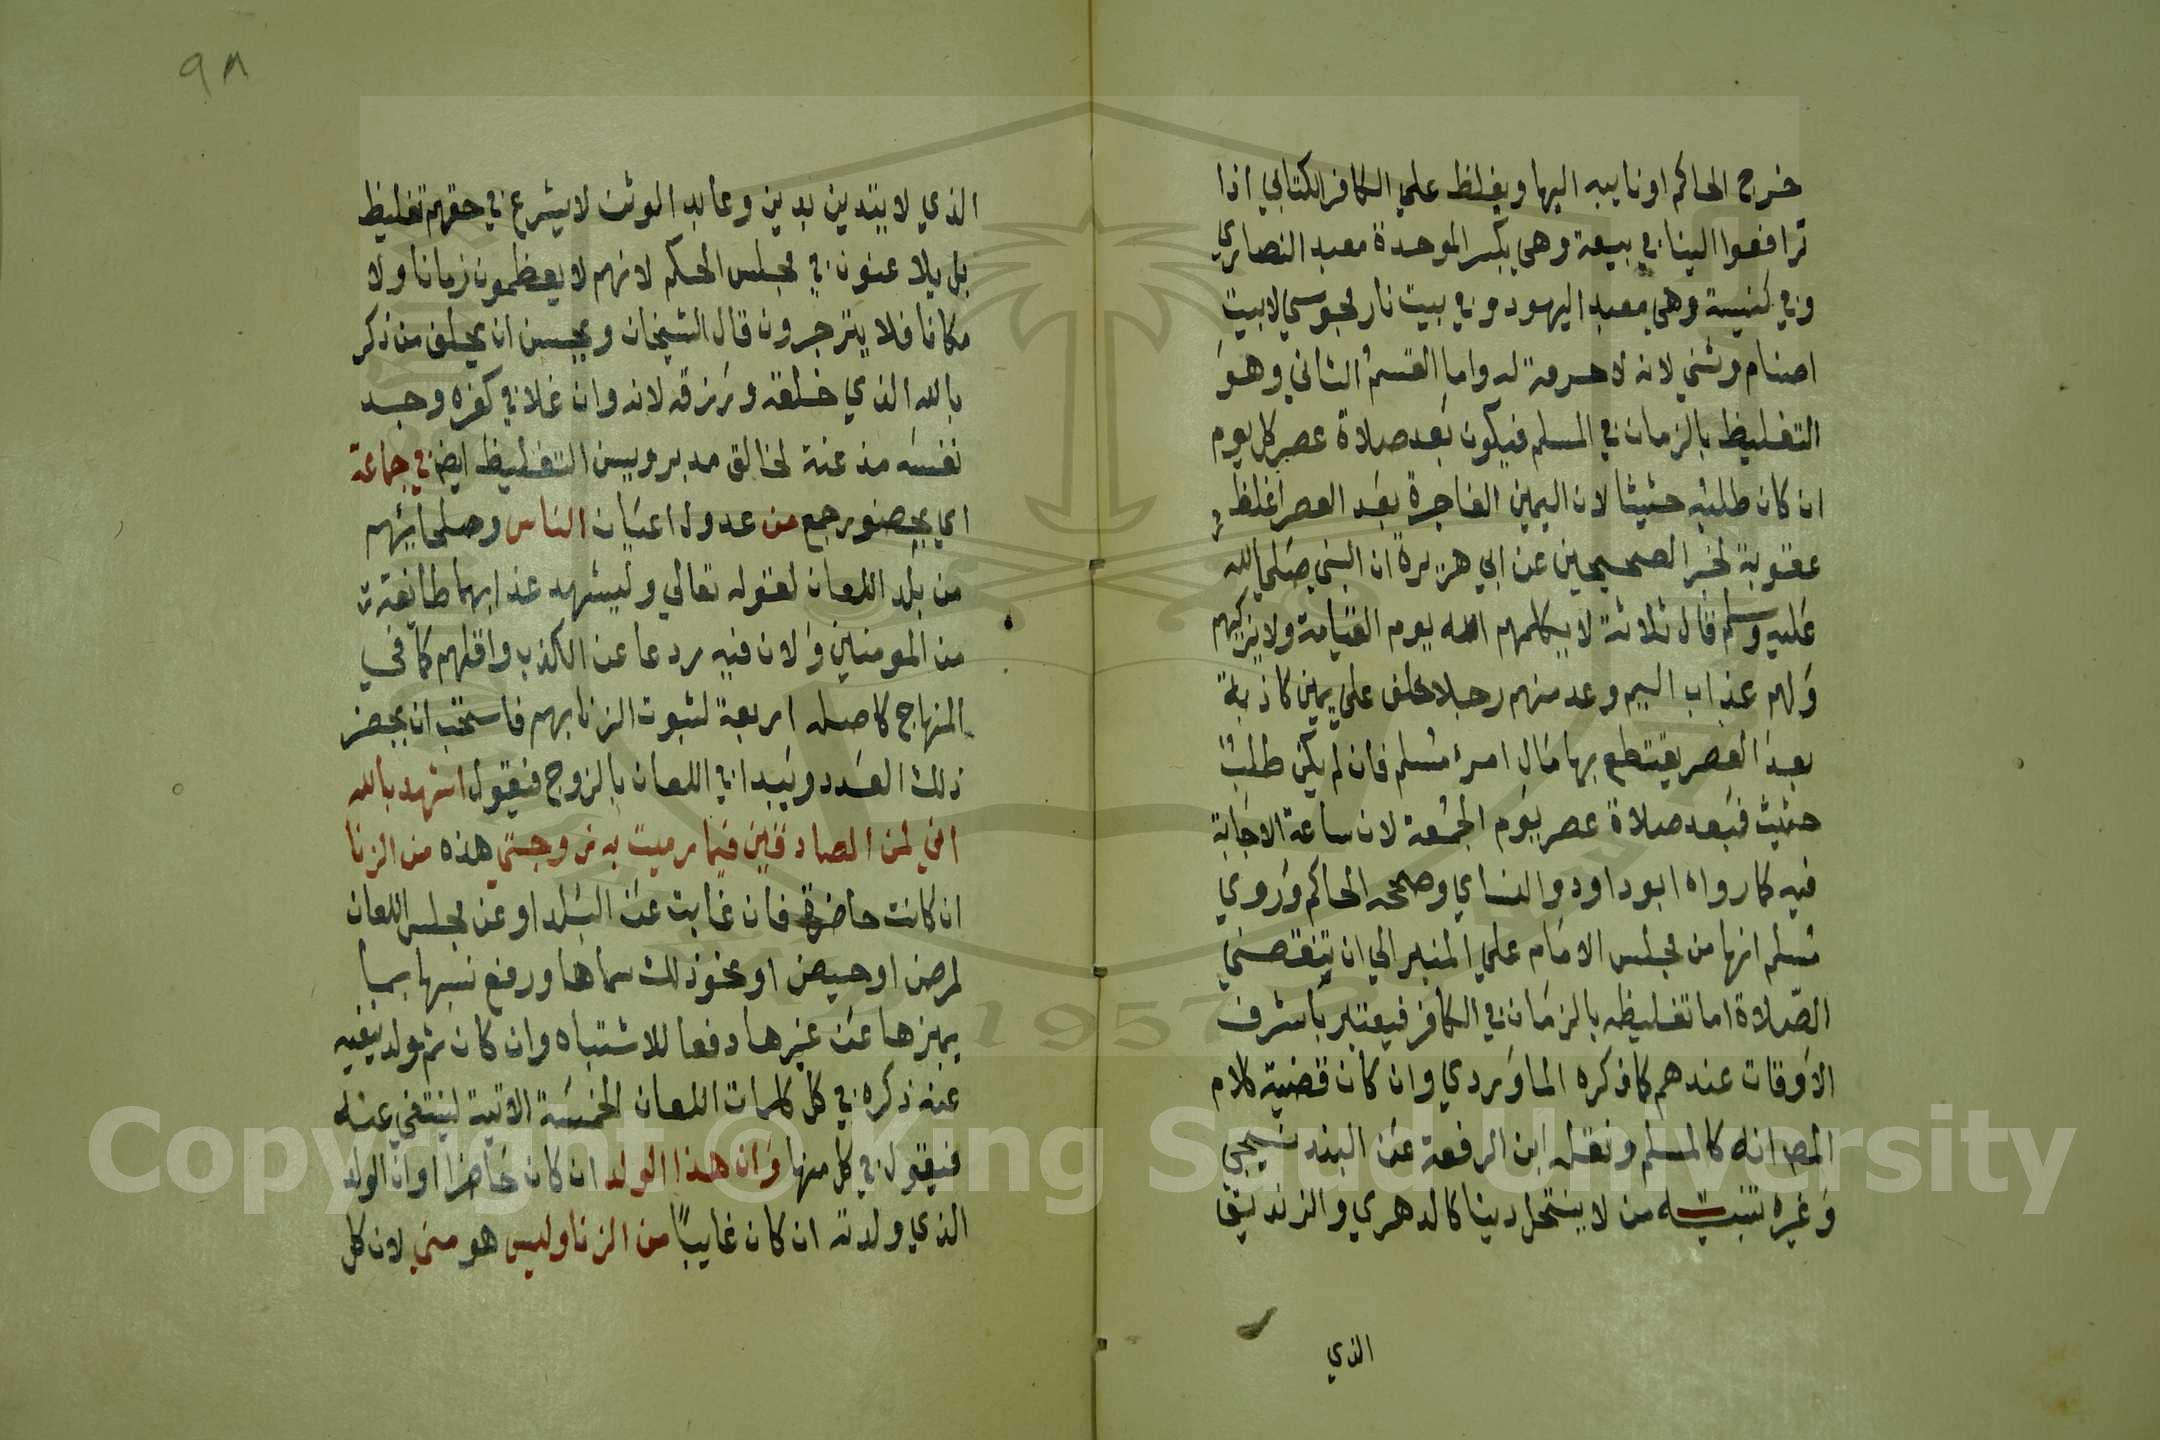 خرج الحاكم او نايبه اليها ويغلظ علي الكافر الكتابي اذا
ترافعوا الينا في بيعة وهي بكسر الموحدة معبد النصاري
وفي كنيسة وهي معبد اليهود وفي بيت نار مجوسي لا بيت
اصنام وثني لانه لا حرمة له واما القسم الثاني وهو
التغليظ بالزمان في المسلم فيكون بعد صلاة عصر كل يوم
ان كان طلبه حثيثا لان اليمين الفاجرة بعد العصر اغلظ
عقوبة لخبر الصحيحين عن ابي هريرة ان النبي صلي الله
عليه وسلم قال ثلاثة لا يكلمهم الله يوم القيامة ولا يزكيهم
ولهم عذاب اليم وعد منهم رجلا حلف علي يمين كاذبة
بعد العصر يقتطع بها مال امرء مسلم فان لم يكن طلب
حثيث فبعد صلاة عصر يوم الجمعة لان ساعة الاجابة
فيه كما رواه ابو داود والنساي وصححه الحاكم وروي
مسلم انها من مجلس الامام علي المنبر الي ان تنقضي
الصلاة اما تغليظه بالزمان في الكافر فيعتبر باشرف
الاوقات عندهم كما ذكره الماوردي وان كان قضية كلام
المص انه كالمسلم ونقله ابن الرفعة عن البندنيجي
وغيره تنبيه من لا ينتحل دينا كالدهري والزنديق
الذي
٩٨
الذي لا يتدين بدين وعابد الوثن لا يشرع في حقهم تغليظ
بل يلاعنون في مجلس الحكم لانهم لا يعظمون زمانا ولا
مكانا فلا ينزجرون قال الشيخان ويحسن ان يحلف من ذكر
بالله الذي خلقه ورزقه لانه وان غلا في كفره وجد
نفسه مذعنة لخالق مدبر ويسن التغليظ ايضا في جماعة
اي بحضور جمع من عدول اعيان الناس وصلحايهم
من بلد اللعان لقوله تعالي وليشهد عذابهما طايفة
من المومنين ولان فيه ردعا عن الكذب واقلهم كما في
المنهاج كاصله اربعة لثبوت الزنا بهم فاستحب ان يحضر
ذلك العدد ويبدا في اللعان بالزوج فيقول اشهد بالله
اني لمن الصادقين فيما رميت به زوجتي هذه من الزنا
ان كانت حاضرة فان غابت عن البلد او عن مجلس اللعان
لمرض او حيض او نحو ذلك سماها ورفع نسبها بما
يميزها عن غيرها دفعا للاشتباه وان كان ثم ولد ينفيه
عنه ذكره في كل كلمات اللعان الخمسة الاتية لينتفي عنه
فيقول في كل منها وان هذا الولد ان كان حاضرا او ان الولد
الذي ولدته ان كان غايبا من الزنا وليس هو مني لان كل
1957
Copyright © King Saud University